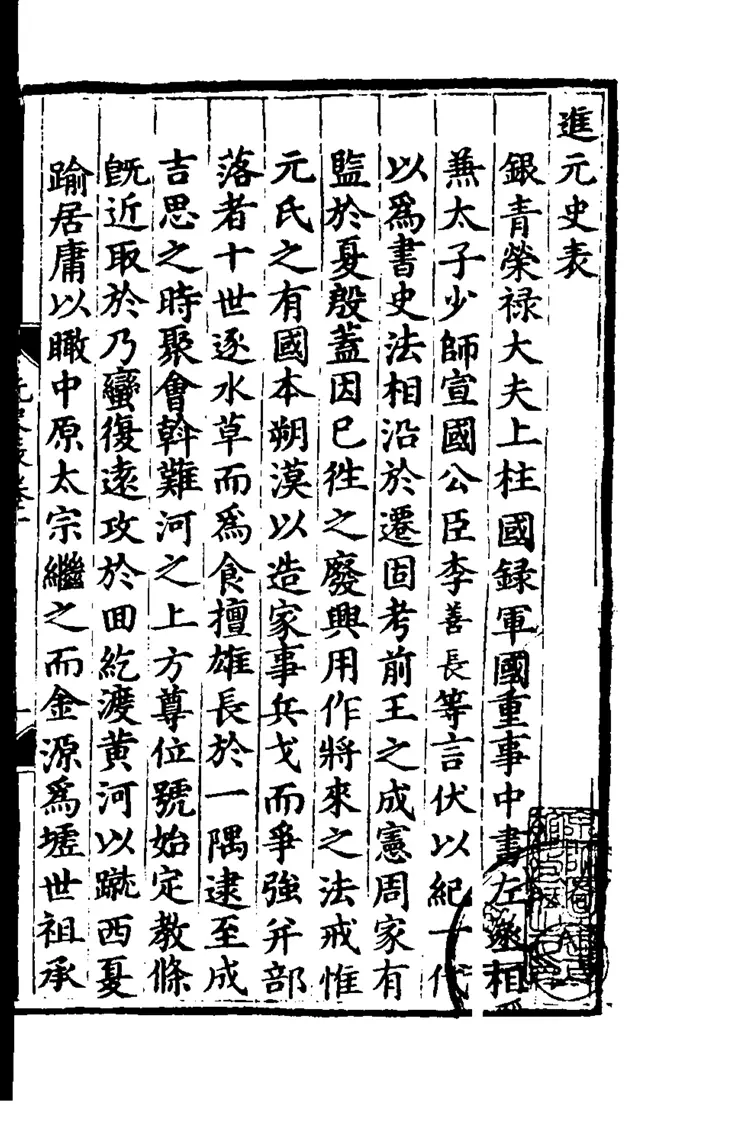 進元史表
銀青榮祿大夫上柱國録軍國重事中書左丞相
兼太子少師宣國公臣李善長等言伏以紀一代
以爲書史法相沿於遷固考前王之成憲周家有
監於夏殷蓋因已徃之廢興用作將來之法戒惟
元氏之有國本朔漠以造家事兵戈而爭強并部
落者十世逐水草而爲食擅雄長於一隅逮至成
吉思之時聚會斡難河之上方尊位號始定教條
旣近取於乃蠻復遠攻於囬紇渡黄河以蹴西夏
踰居庸以瞰中原太宗繼之而金源爲墟世祖承